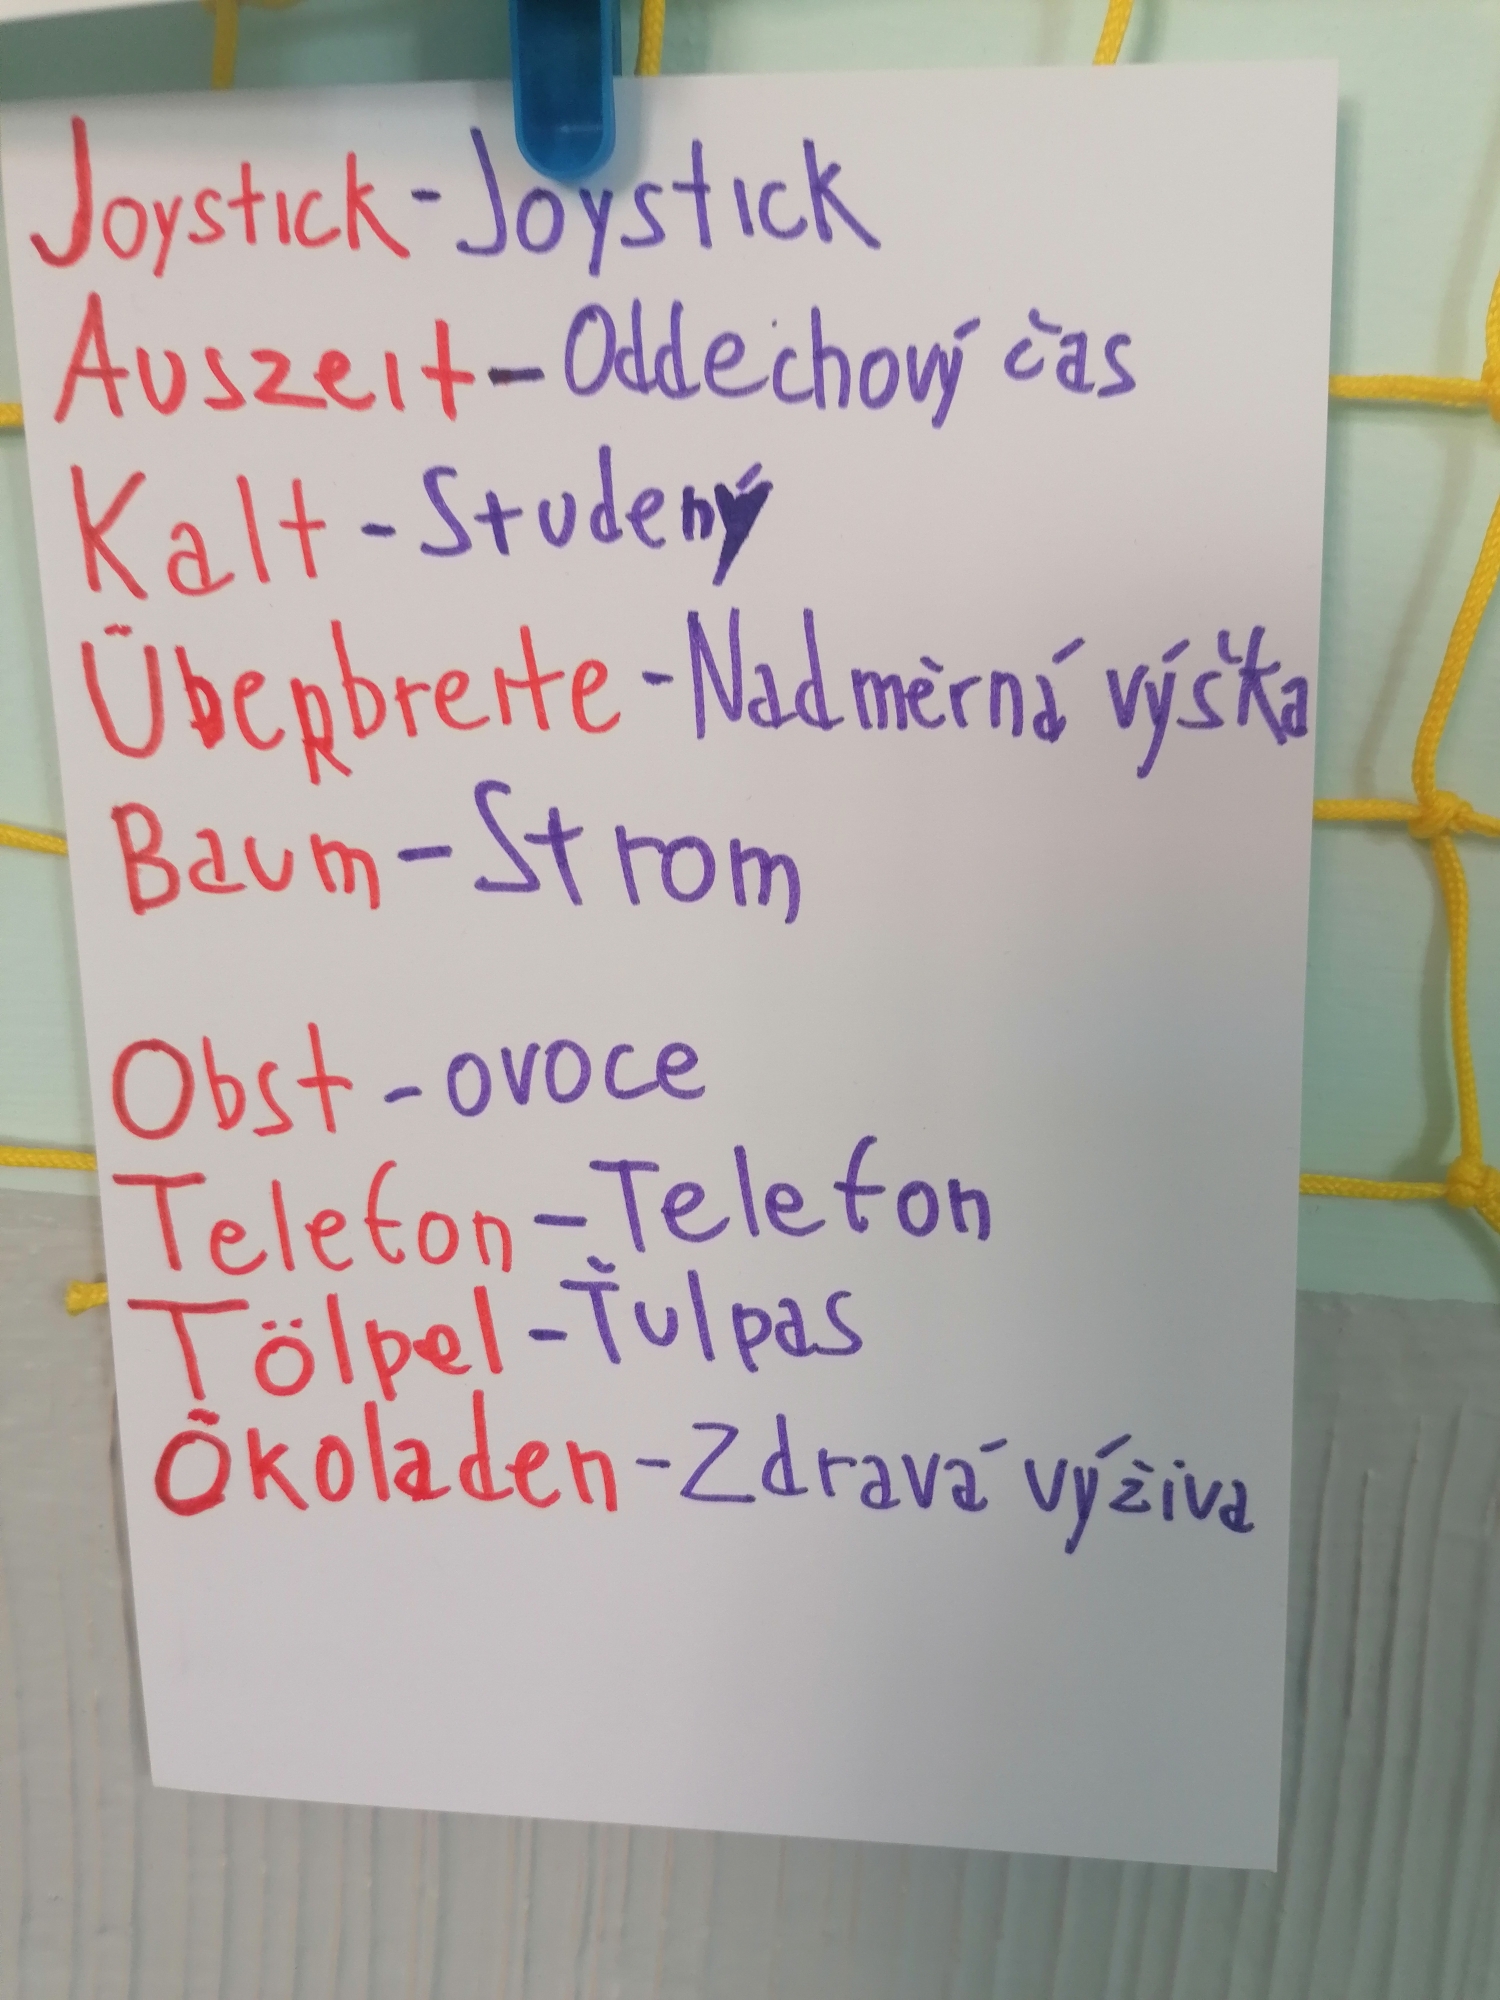 Joystick - Joystick
Auszeit - Oddechový čas
Kalt - Studený
Überbreite - Nadměrná výška
Baum - Strom
Obst - ovoce
Telefon - Telefon
Tölpel - Ťulpas
Ökoladen - Zdravá výživa